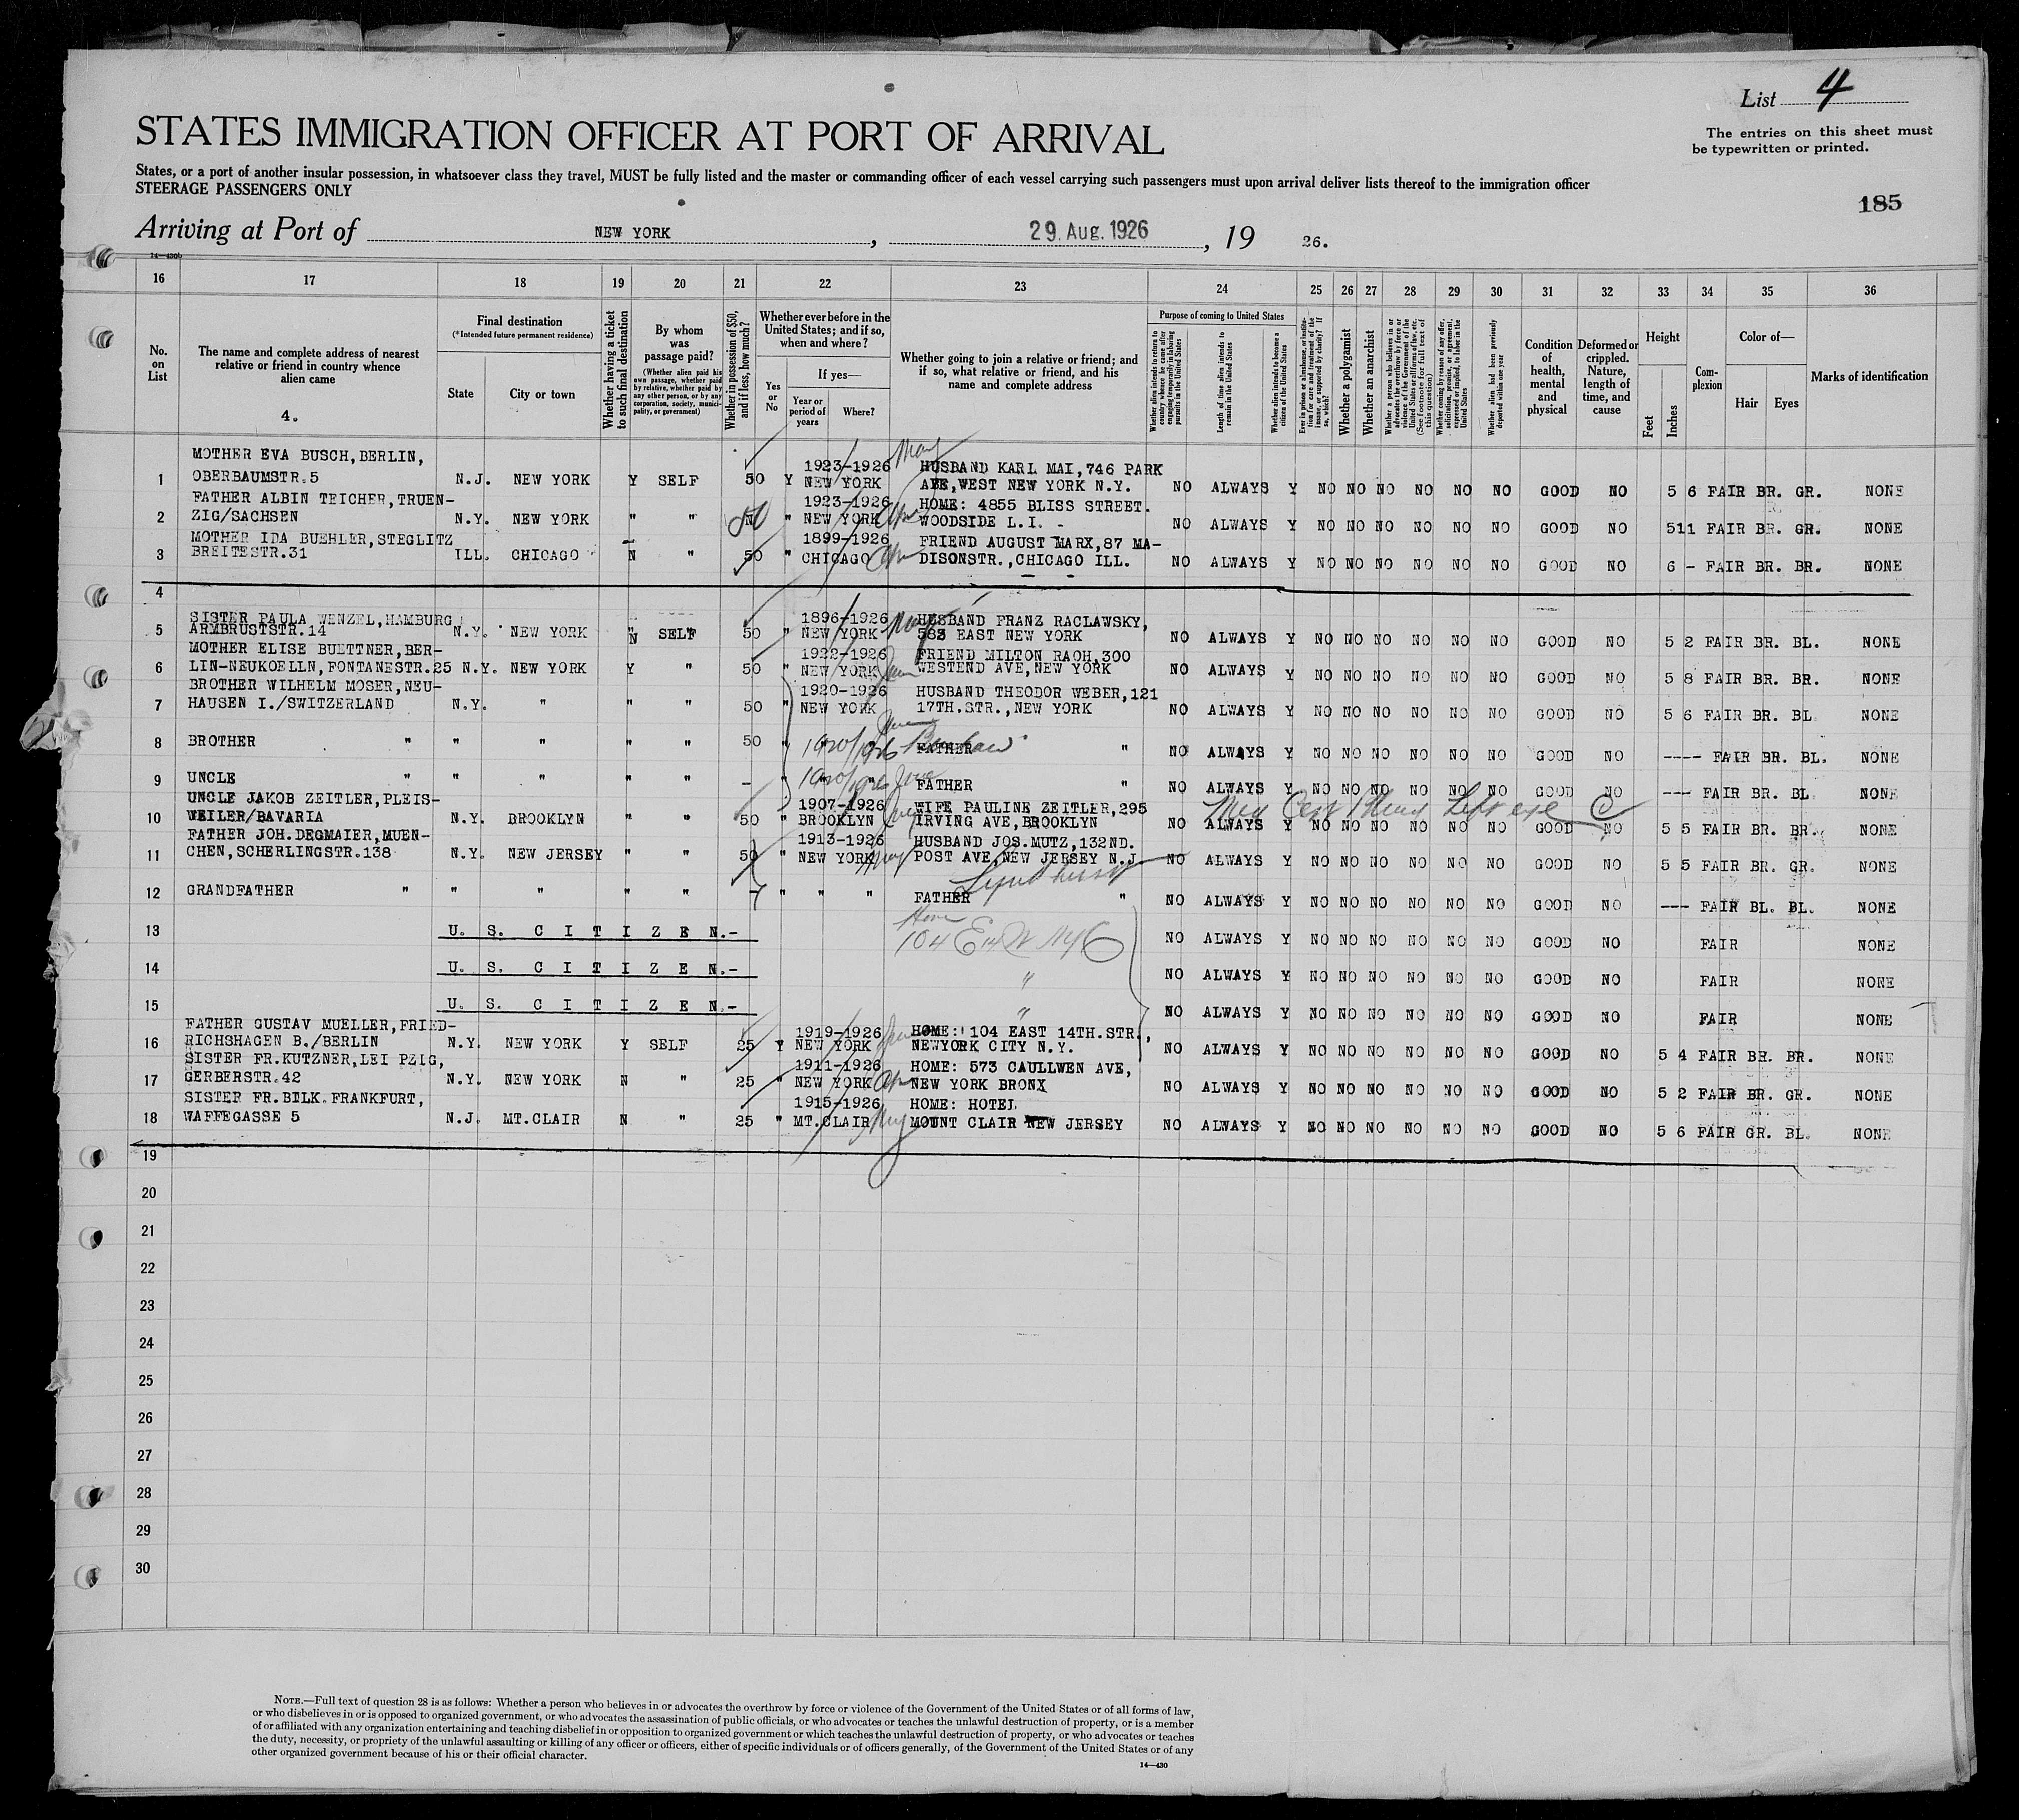 List 4
STATES IMMIGRATION OFFICER AT PORT OF ARRIVAL
The entries on this sheet must
be typewritten or printed.
States, or a port of another insular possession, in whatsoever class they travel, MUST be fully listed and the master or commanding officer of each vessel carrying such passengers must upon arrival deliver lists thereof to the immigration officer
STEERAGE PASSENGERS ONLY
185
Arriving at Port of NEW YORK, 29. Aug. 1926, 19 26.
14—430b
16 17 18 19 20 21 22 23 24 25 26 27 28 29 30 31 32 33 34 35 36
No. on List
The name and complete address of nearest relative or friend in country whence alien came
4.
Final destination
(*Intended future permanent residence)
State
City or town
Whether having a ticket to such final destination
By whom was passage paid?
(Whether alien paid his own passage, whether paid by relative, whether paid by any other person, or by any corporation, society, municipality, or government)
Whether in possession of $50, and if less, how much?
Whether ever before in the United States; and if so, when and where?
Yes or No
If yes—
Year or period of years
Where?
Whether going to join a relative or friend; and if so, what relative or friend, and his name and complete address
Purpose of coming to United States
Whether alien intends to return to country whence he came after engaging temporarily in laboring pursuits in the United States
Length of time alien intends to remain in the United States
Whether alien intends to become a citizen of the United States
Ever in prison or almshouse, or institution for care and treatment of the insane, or supported by charity? If so, which?
Whether a polygamist
Whether an anarchist
Whether a person who believes in or advocates the overthrow by force or violence of the Government of the United States or all forms of law, etc. (See footnote for full text of this question)
Whether coming by reason of any offer, solicitation, promise, or agreement, expressed or implied, to labor in the United States
Whether alien had been previously deported within one year
Condition of health, mental and physical
Deformed or crippled. Nature, length of time, and cause
Height
Feet
Inches
Complexion
Color of—
Hair
Eyes
Marks of identification
MOTHER EVA BUSCH, BERLIN, 1923-1926 HUSBAND KARL MAI, 746 PARK
1 OBERBAUMSTR. 5 N.J. NEW YORK Y SELF 50 Y NEW YORK AVE, WEST NEW YORK N.Y. NO ALWAYS Y NO NO NO NO NO NO GOOD NO 5 6 FAIR BR. GR. NONE
FATHER ALBIN TEICHER, TRUEN- 1923-1926 HOME: 4855 BLISS STREET.
2 ZIG/SACHSEN N.Y. NEW YORK " " 50 " NEW YORK WOODSIDE L.I. - NO ALWAYS Y NO NO NO NO NO NO GOOD NO 511 FAIR BR. GR. NONE
MOTHER IDA BUEHLER, STEGLITZ 1899-1926 FRIEND AUGUST MARX, 87 MA-
3 BREITESTR. 31 ILL. CHICAGO N " 50 " CHICAGO DISONSTR., CHICAGO ILL. NO ALWAYS Y NO NO NO NO NO NO GOOD NO 6 - FAIR BR. BR. NONE
4
SISTER PAULA WENZEL, HAMBURG 1896-1926 HUSBAND FRANZ RACLAWSKY,
5 ARMBRUSTSTR. 14 N.Y. NEW YORK N SELF 50 " NEW YORK 583 EAST NEW YORK NO ALWAYS Y NO NO NO NO NO NO GOOD NO 5 2 FAIR BR. BL. NONE
MOTHER ELISE BUETTNER, BER- 1922-1926 FRIEND MILTON RAOH, 300
6 LIN-NEUKOELLN, FONTANESTR. 25 N.Y. NEW YORK Y " 50 " NEW YORK WESTEND AVE, NEW YORK NO ALWAYS Y NO NO NO NO NO NO GOOD NO 5 8 FAIR BR. BR. NONE
BROTHER WILHELM MOSER, NEU- 1920-1926 HUSBAND THEODOR WEBER, 121
7 HAUSEN I./SWITZERLAND N.Y. " " " 50 " NEW YORK 17TH. STR., NEW YORK NO ALWAYS Y NO NO NO NO NO NO GOOD NO 5 6 FAIR BR. BL NONE
8 BROTHER " " " " " 50 " 1920/1926 FATHER " NO ALWAYS Y NO NO NO NO NO NO GOOD NO ---- FAIR BR. BL. NONE
9 UNCLE " " " " " - " 1920/1926 June FATHER " NO ALWAYS Y NO NO NO NO NO NO GOOD NO --- FAIR BR. BL NONE
UNCLE JAKOB ZEITLER, PLEIS- 1907-1926 WIFE PAULINE ZEITLER, 295 Med Cert Left eye
10 WEILER/BAVARIA N.Y. BROOKLYN " " 50 " BROOKLYN IRVING AVE, BROOKLYN NO ALWAYS Y NO NO NO NO NO NO GOOD NO 5 5 FAIR BR. BR. NONE
FATHER JOH. DEGMAIER, MUEN- 1913-1926 HUSBAND JOS. MUTZ, 132ND.
11 CHEN, SCHERLINGSTR. 138 N.Y. NEW JERSEY " " 50 " NEW YORK POST AVE, NEW JERSEY N.J. NO ALWAYS Y NO NO NO NO NO NO GOOD NO 5 5 FAIR BR. GR. NONE
Lyndhurst
12 GRANDFATHER " " " " " " " " FATHER " NO ALWAYS Y NO NO NO NO NO NO GOOD NO --- FAIR BL. BL. NONE
Home
13 U. S. C I T I Z E N.- 104 E 14 NYC NO ALWAYS Y NO NO NO NO NO NO GOOD NO FAIR NONE
14 U. S. C I T I Z E N.- " NO ALWAYS Y NO NO NO NO NO NO GOOD NO FAIR NONE
15 U. S. C I T I Z E N.- " NO ALWAYS Y NO NO NO NO NO NO GOOD NO FAIR NONE
FATHER GUSTAV MUELLER, FRIED- 1919-1926 HOME: 104 EAST 14TH. STR.,
16 RICHSHAGEN B./BERLIN N.Y. NEW YORK Y SELF 25 Y NEW YORK NEWYORK CITY N.Y. NO ALWAYS Y NO NO NO NO NO NO GOOD NO 5 4 FAIR BR. BR. NONE
SISTER FR. KUTZNER, LEI PZIG, 1911-1926 HOME: 573 CAULLWEN AVE,
17 GERBERSTR. 42 N.Y. NEW YORK N " 25 " NEW YORK NEW YORK BRONX NO ALWAYS Y NO NO NO NO NO NO GOOD NO 5 2 FAIR BR. GR. NONE
SISTER FR. BILK. FRANKFURT, 1915-1926 HOME: HOTEL
18 WAFFEGASSE 5 N.J. MT. CLAIR N " 25 " MT. CLAIR MOUNT CLAIR NEW JERSEY NO ALWAYS Y NO NO NO NO NO NO GOOD NO 5 6 FAIR GR. BL. NONE
19
20
21
22
23
24
25
26
27
28
29
30
NOTE.—Full text of question 28 is as follows: Whether a person who believes in or advocates the overthrow by force or violence of the Government of the United States or of all forms of law,
or who disbelieves in or is opposed to organized government, or who advocates the assassination of public officials, or who advocates or teaches the unlawful destruction of property, or is a member
of or affiliated with any organization entertaining and teaching disbelief in or opposition to organized government or which teaches the unlawful destruction of property, or who advocates or teaches
the duty, necessity, or propriety of the unlawful assaulting or killing of any officer or officers, either of specific individuals or of officers generally, of the Government of the United States or of any
other organized government because of his or their official character.
14—430